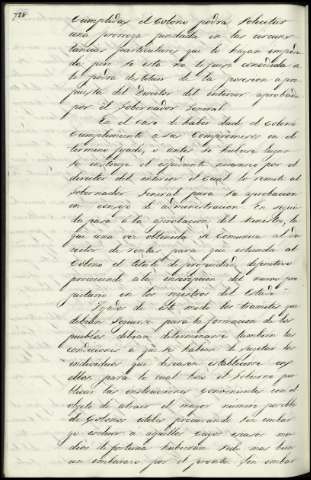 728
cumplidas el Colono podra solicitar
una proroga fundada en las circuns-
tancias particulares que le hayan impedi-
do, pero si esta no le fuese concedida se
le podra destituir de la posesion a pro-
puesta del Director del interior aprobada
por el Gobernador General.
En el caso de haber dado el Colono
cumplimiento a sus compromisos en el
termino fijado, o antes si hubiere lugar
se instruye el espediente necesario por el
director del interior el cual lo remite al
Gobernador General para su aprobacion
en consejo de administracion. En segui-
da pasa a la aprobacion del Ministro, la
que una vez obtenida se comunica al di-
rector de rentas para que estienda al
Colono el titulo de propiedad definitivo
procediendo a la inscripcion del nuevo pro-
pietario en los registros del Estado.
Fijados de este modo los tramites que
debian seguirse para la formacion de los
pueblos debian determinarse tambien las
condiciones a que se habian de sujetar los
individuos que deseasen establecerse en
ellos para lo cual hizo el Gobierno pu-
blicar las instrucciones convenientes con el
objeto de atraer el mayor numero posible
de Colonos utiles procurando sin embar-
go escluir a aquellos cuyos escasos me-
dios de fortuna hubieran sido mas bien
un embarazo por el pronto. Sin embar